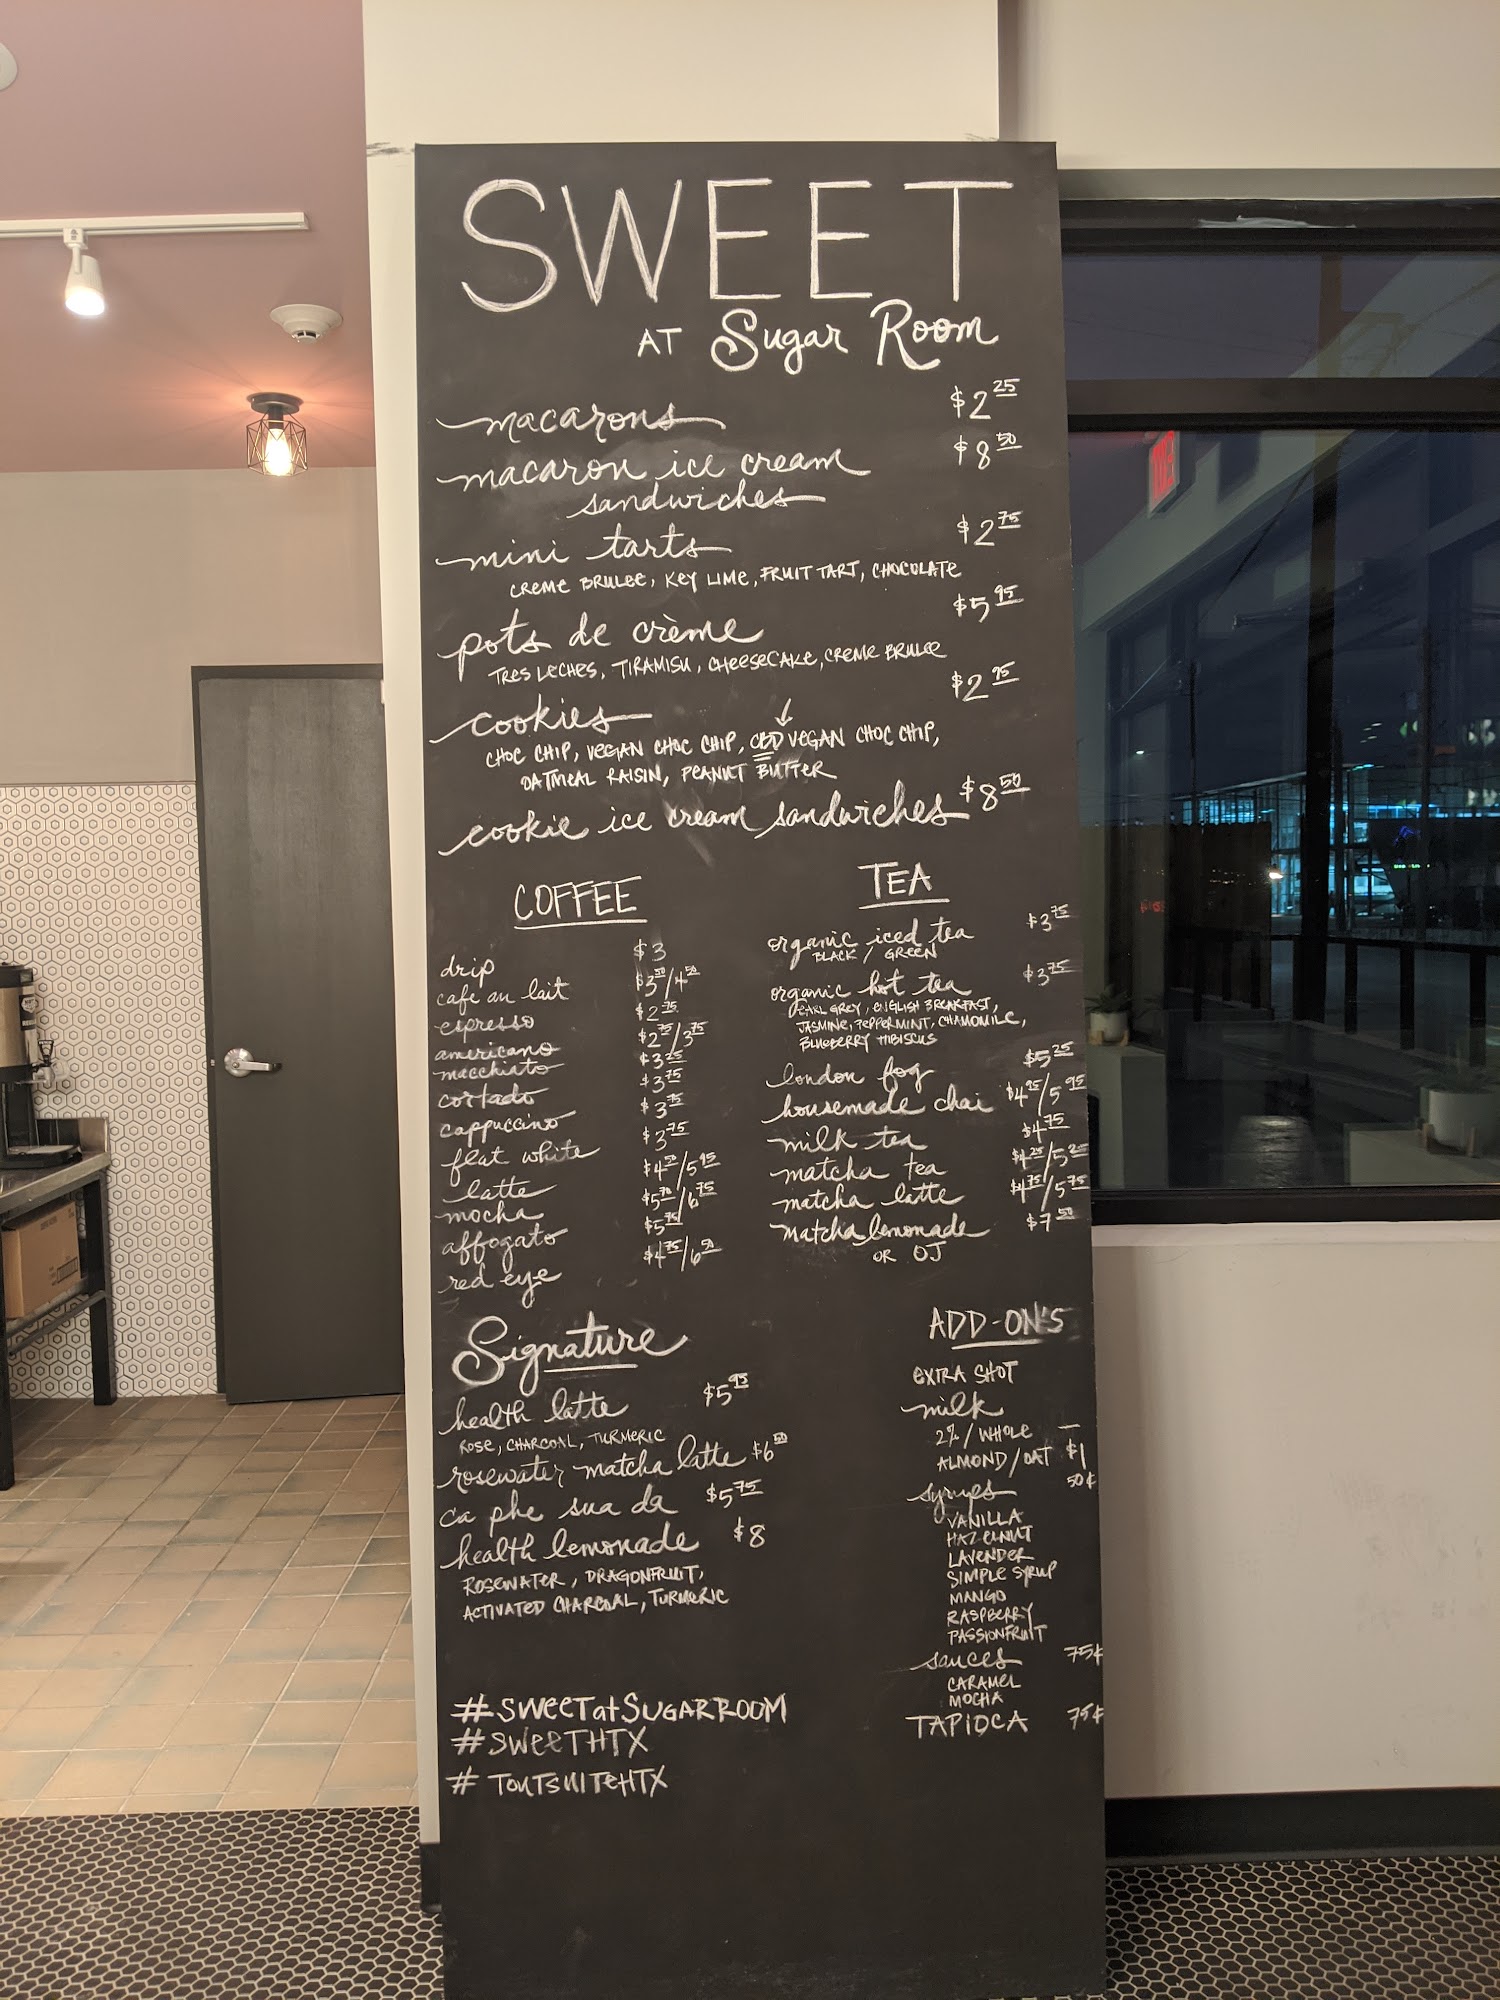 SWEET
AT Sugar Room
macarons $2.25
macaron ice cream $8.50
sandwiches
mini tarts $2.75
CREME BRULEE, KEY LIME, FRUIT TART, CHOCOLATE
pots de crème $5.95
TRES LECHES, TIRAMISU, CHEESECAKE, CREME BRULEE
cookies $2.95
CHOC CHIP, VEGAN CHOC CHIP, CBD VEGAN CHOC CHIP,
OATMEAL RAISIN, PEANUT BUTTER
cookie ice cream sandwiches $8.50
COFFEE
drip $3
cafe au lait $3.50/4.50
espresso $2.75
americano $2.75/3.75
macchiato $3.25
cortado $3.75
cappuccino $3.75
flat white $3.75
latte $4.50/5.95
mocha $5.70/6.75
affogato $5.75
red eye $4.75/6.50
TEA
organic iced tea $3.75
BLACK / GREEN
organic hot tea $3.75
EARL GREY, ENGLISH BREAKFAST,
JASMINE, PEPPERMINT, CHAMOMILE,
BLUEBERRY HIBISCUS
london fog $5.25
housemade chai $4.95/5.95
milk tea $4.75
matcha tea $4.25/5.25
matcha latte $4.75/5.75
matcha lemonade $7.50
OR OJ
Signature
health latte $5.95
ROSE, CHARCOAL, TURMERIC
rosewater matcha latte $6.50
ca phe sua da $5.75
health lemonade $8
ROSEWATER, DRAGONFRUIT,
ACTIVATED CHARCOAL, TURMERIC
ADD-ON'S
EXTRA SHOT
milk
2% / WHOLE —
ALMOND / OAT $1
syrups 50¢
VANILLA
HAZELNUT
LAVENDER
SIMPLE SYRUP
MANGO
RASPBERRY
PASSIONFRUIT
sauces 75¢
CARAMEL
MOCHA
TAPIOCA 75¢
#SWEETatSUGARROOM
#SWEETHTX
# TOUTSUITEHTX